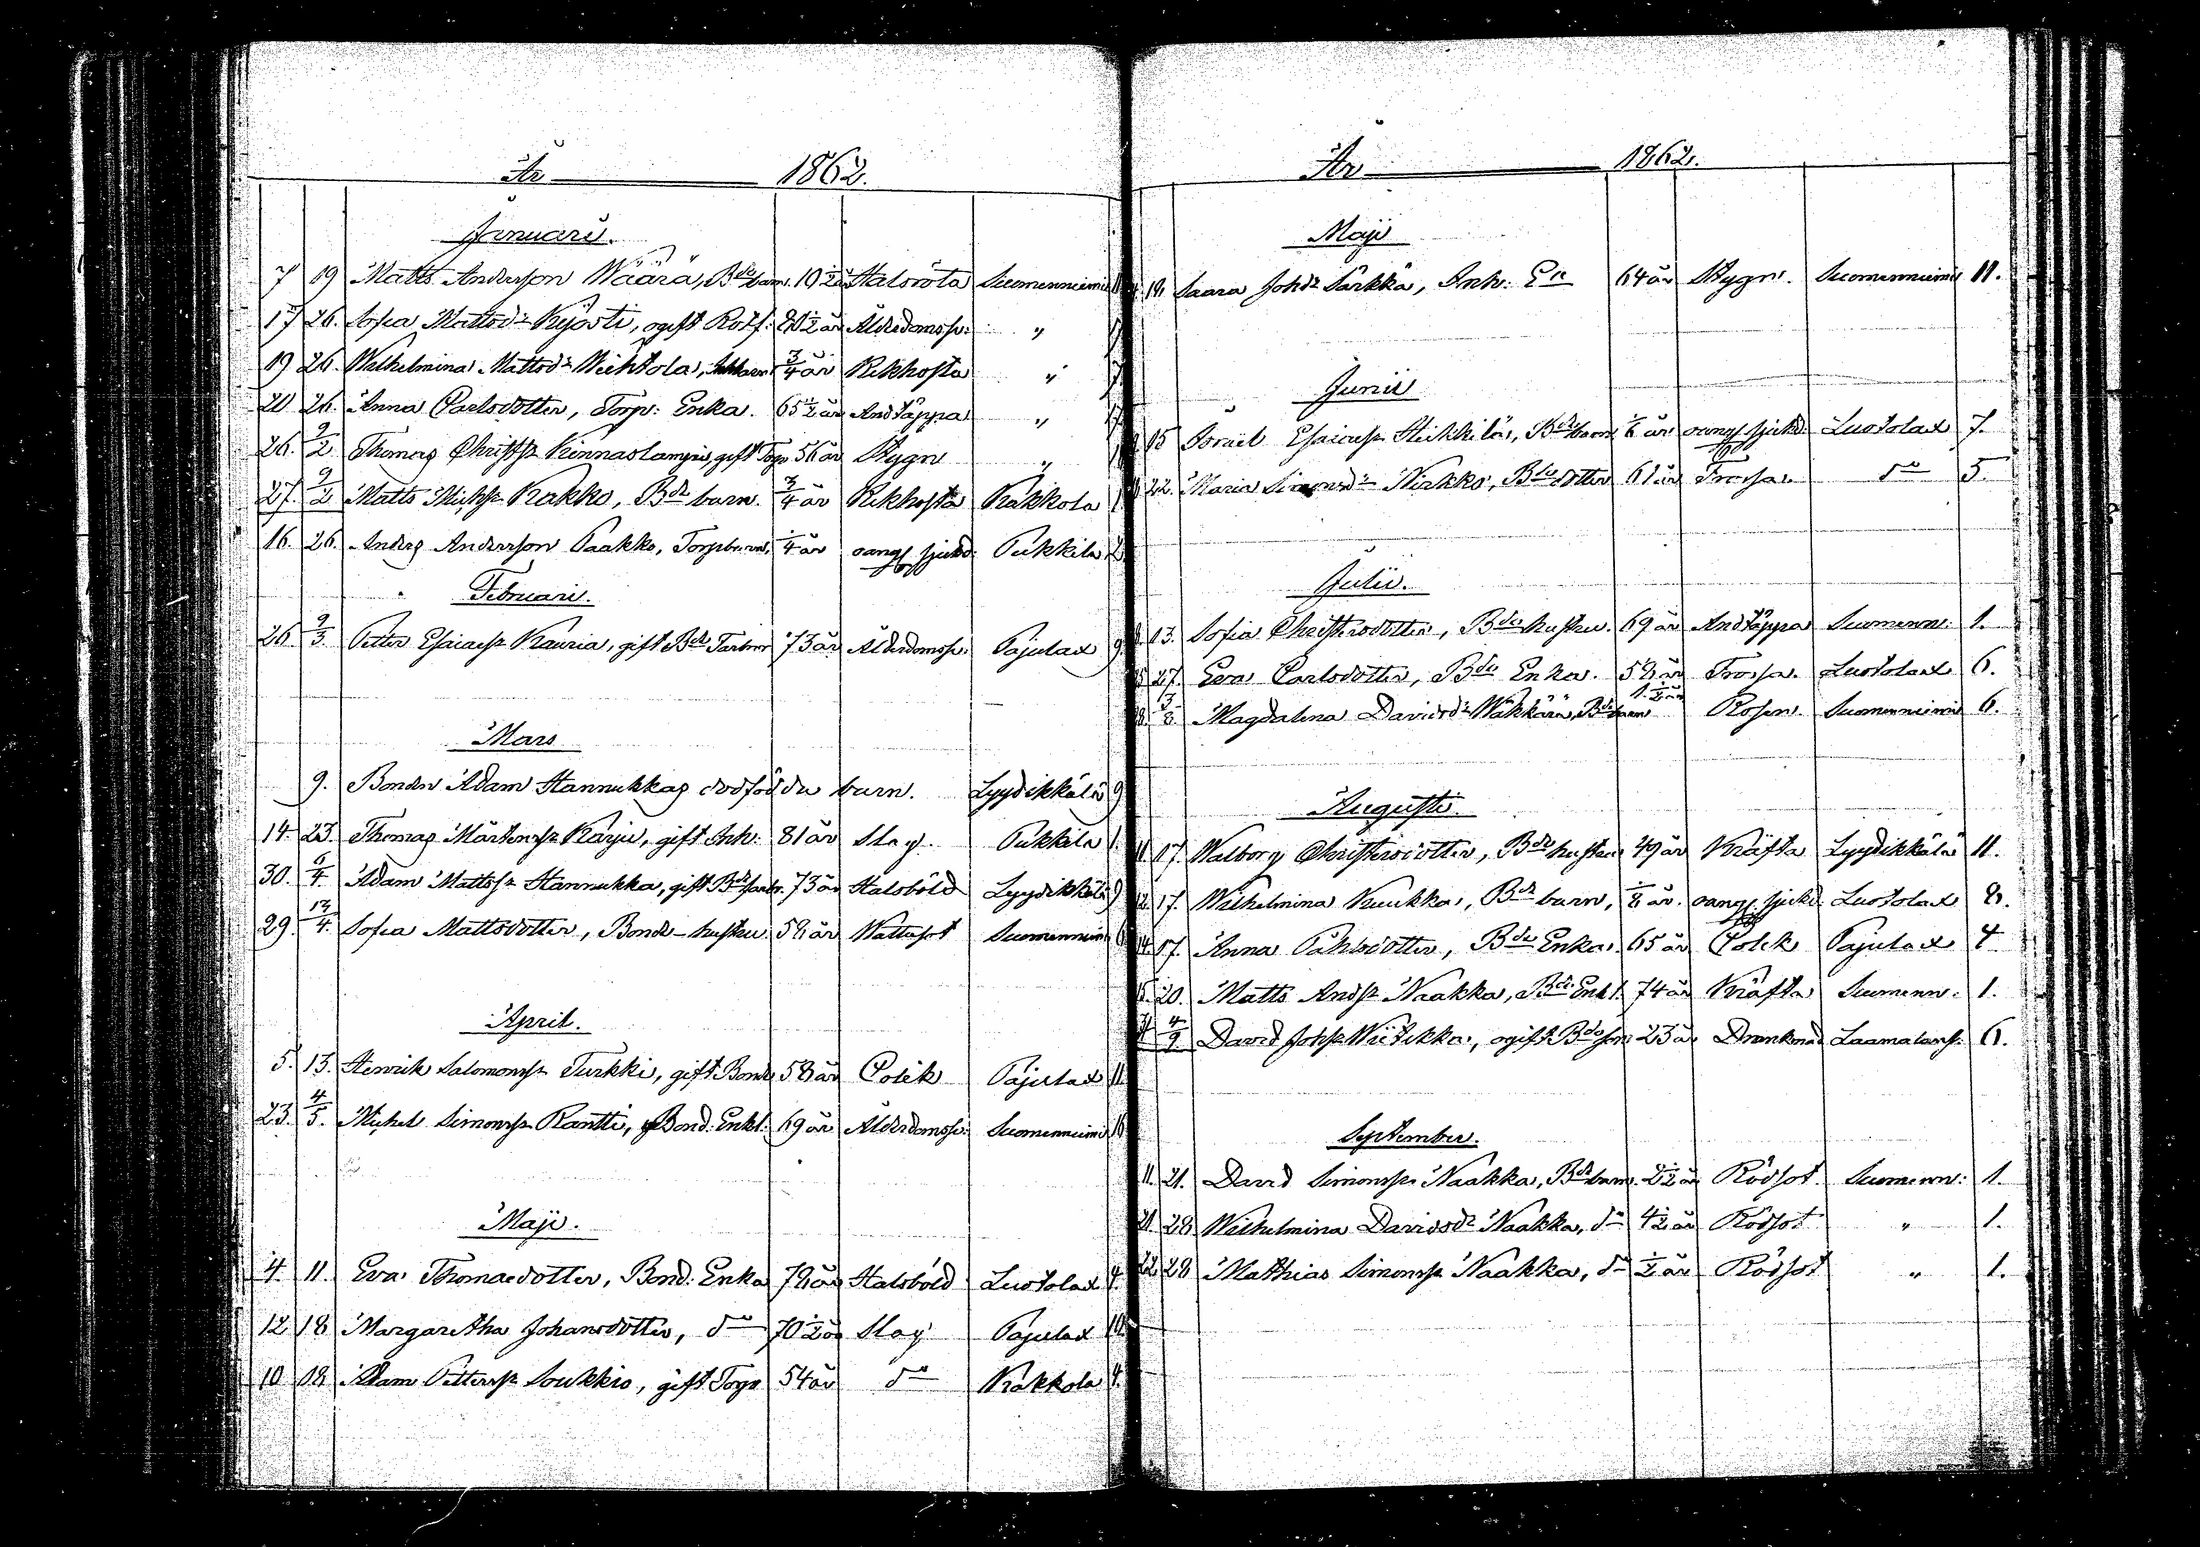 År 1862.
Januari.
7 19 Matts Andersson Wäärä, Bdebarn. 10 1/2 år Halsröta Suomenniemi
17 26. Sofia Mattsdr Kyösti, ogift Rotf: 20 1/2 år Ålderdomssv: "
19 26 Wilhelmina Mattsdr Wichtola, 3/4 år Kikhosta "
20 26. Anna Carlsdotter, Torp: Enka. 65 1/2 år Andtäppa "
26. 9/2 Thomas Christss Kinnaslampi, gift Torp 56 år Stygn "
27. 9/2 Matts Michss Kakko, Bde barn. 3/4 år Kikhosta Käkkola
16. 26. Anders Andersson Paakko, Torpbarn, 1/4 år oangf sjukd Pukkila 2
Februari.
26. 9/3. Petter Esaiass Kauria, gift Bde Farbror 73 år Ålderdomssv: Pajulax 9
Mars
9. Bonden Adam Hannukkas dödfödda barn. Lyydikkälä 9
14. 23. Thomas Mårtenss Karju, gift Inh: 81 år Slag. Pukkila 1.
30. 6/4. Adam Mattss Hannukka, gift Bdefarbr. 73 år Halsböld Lyydikkälä 9
29. 13/4. Sofia Mattsdotter, Bonde-hustru. 58 år Wattusot Suomenniemi
April.
5. 13. Henrik Salomonss Turkki, gift Bonde 58 år Colik Pajulax 11
23. 4/5. Michel Simonss Rantti, Bond: Enkl. 69 år Ålderdomssv: Suomenniemi
Maji.
4. 11. Eva Thomasdotter, Bond: Enka 78 år Halsböld Luotolax 4.
12 18 Margaretha Johansdotter, do 70 1/2 år Slag Pajulax 10
10 18 Adam Petterss Soukkio, gift Torp 54 år do Käkkola 4.
År 1862.
Maji
18. Saara Johdr Särkkä, Inh: 64 år Stygn. Suomenniemi 11.
Junii
15 Israel Esaiass Heikkilä, Bdebarn 1/6 år oangf sjukd Luotolax 7.
22. Maria Simonsdr Nirkko, Bdedotter 61 år Frossa do 5.
Julii.
13. Sofia Christersdotter, Bdehustru. 69 år Andtäppa Suomenn: 1.
27. Eva Carlsdotter, Bde Enka. 58 år Frossa. Luotolax 6.
3/8. Magdalena Davidsdr Wäkkärä, Bdebarn 1 1/2 år Rosen. Suomenniemi 6.
Augusti.
17. Walborg Christersdotter, Bdehustru 49 år Kräfta Lyydikkälä 11.
17. Wilhelmina Kuukka, Bde barn, 1/8 år. oangf. sjukd. Luotolax 8.
14. 17. Anna Påhlsdotter, Bde Enka. 65 år Colik Pajulax 4
20. Matts Andss Naakka, Bde Enkl. 74 år Kräfta Suomenn: 1.
4/9 David Johss Wiitikka, ogift Bdeson 23 år Drunknad Laamalans: 6.
September.
11. 21. David Simonss Naakka, Bdebarn. 2 1/2 år Rödsot Suomenn: 1.
21 28 Wilhelmina Davidsdr Naakka, do 4 1/2 år Rödsot " 1.
22 28 Mathias Simonss Naakka, do 1/2 år Rödsot " 1.